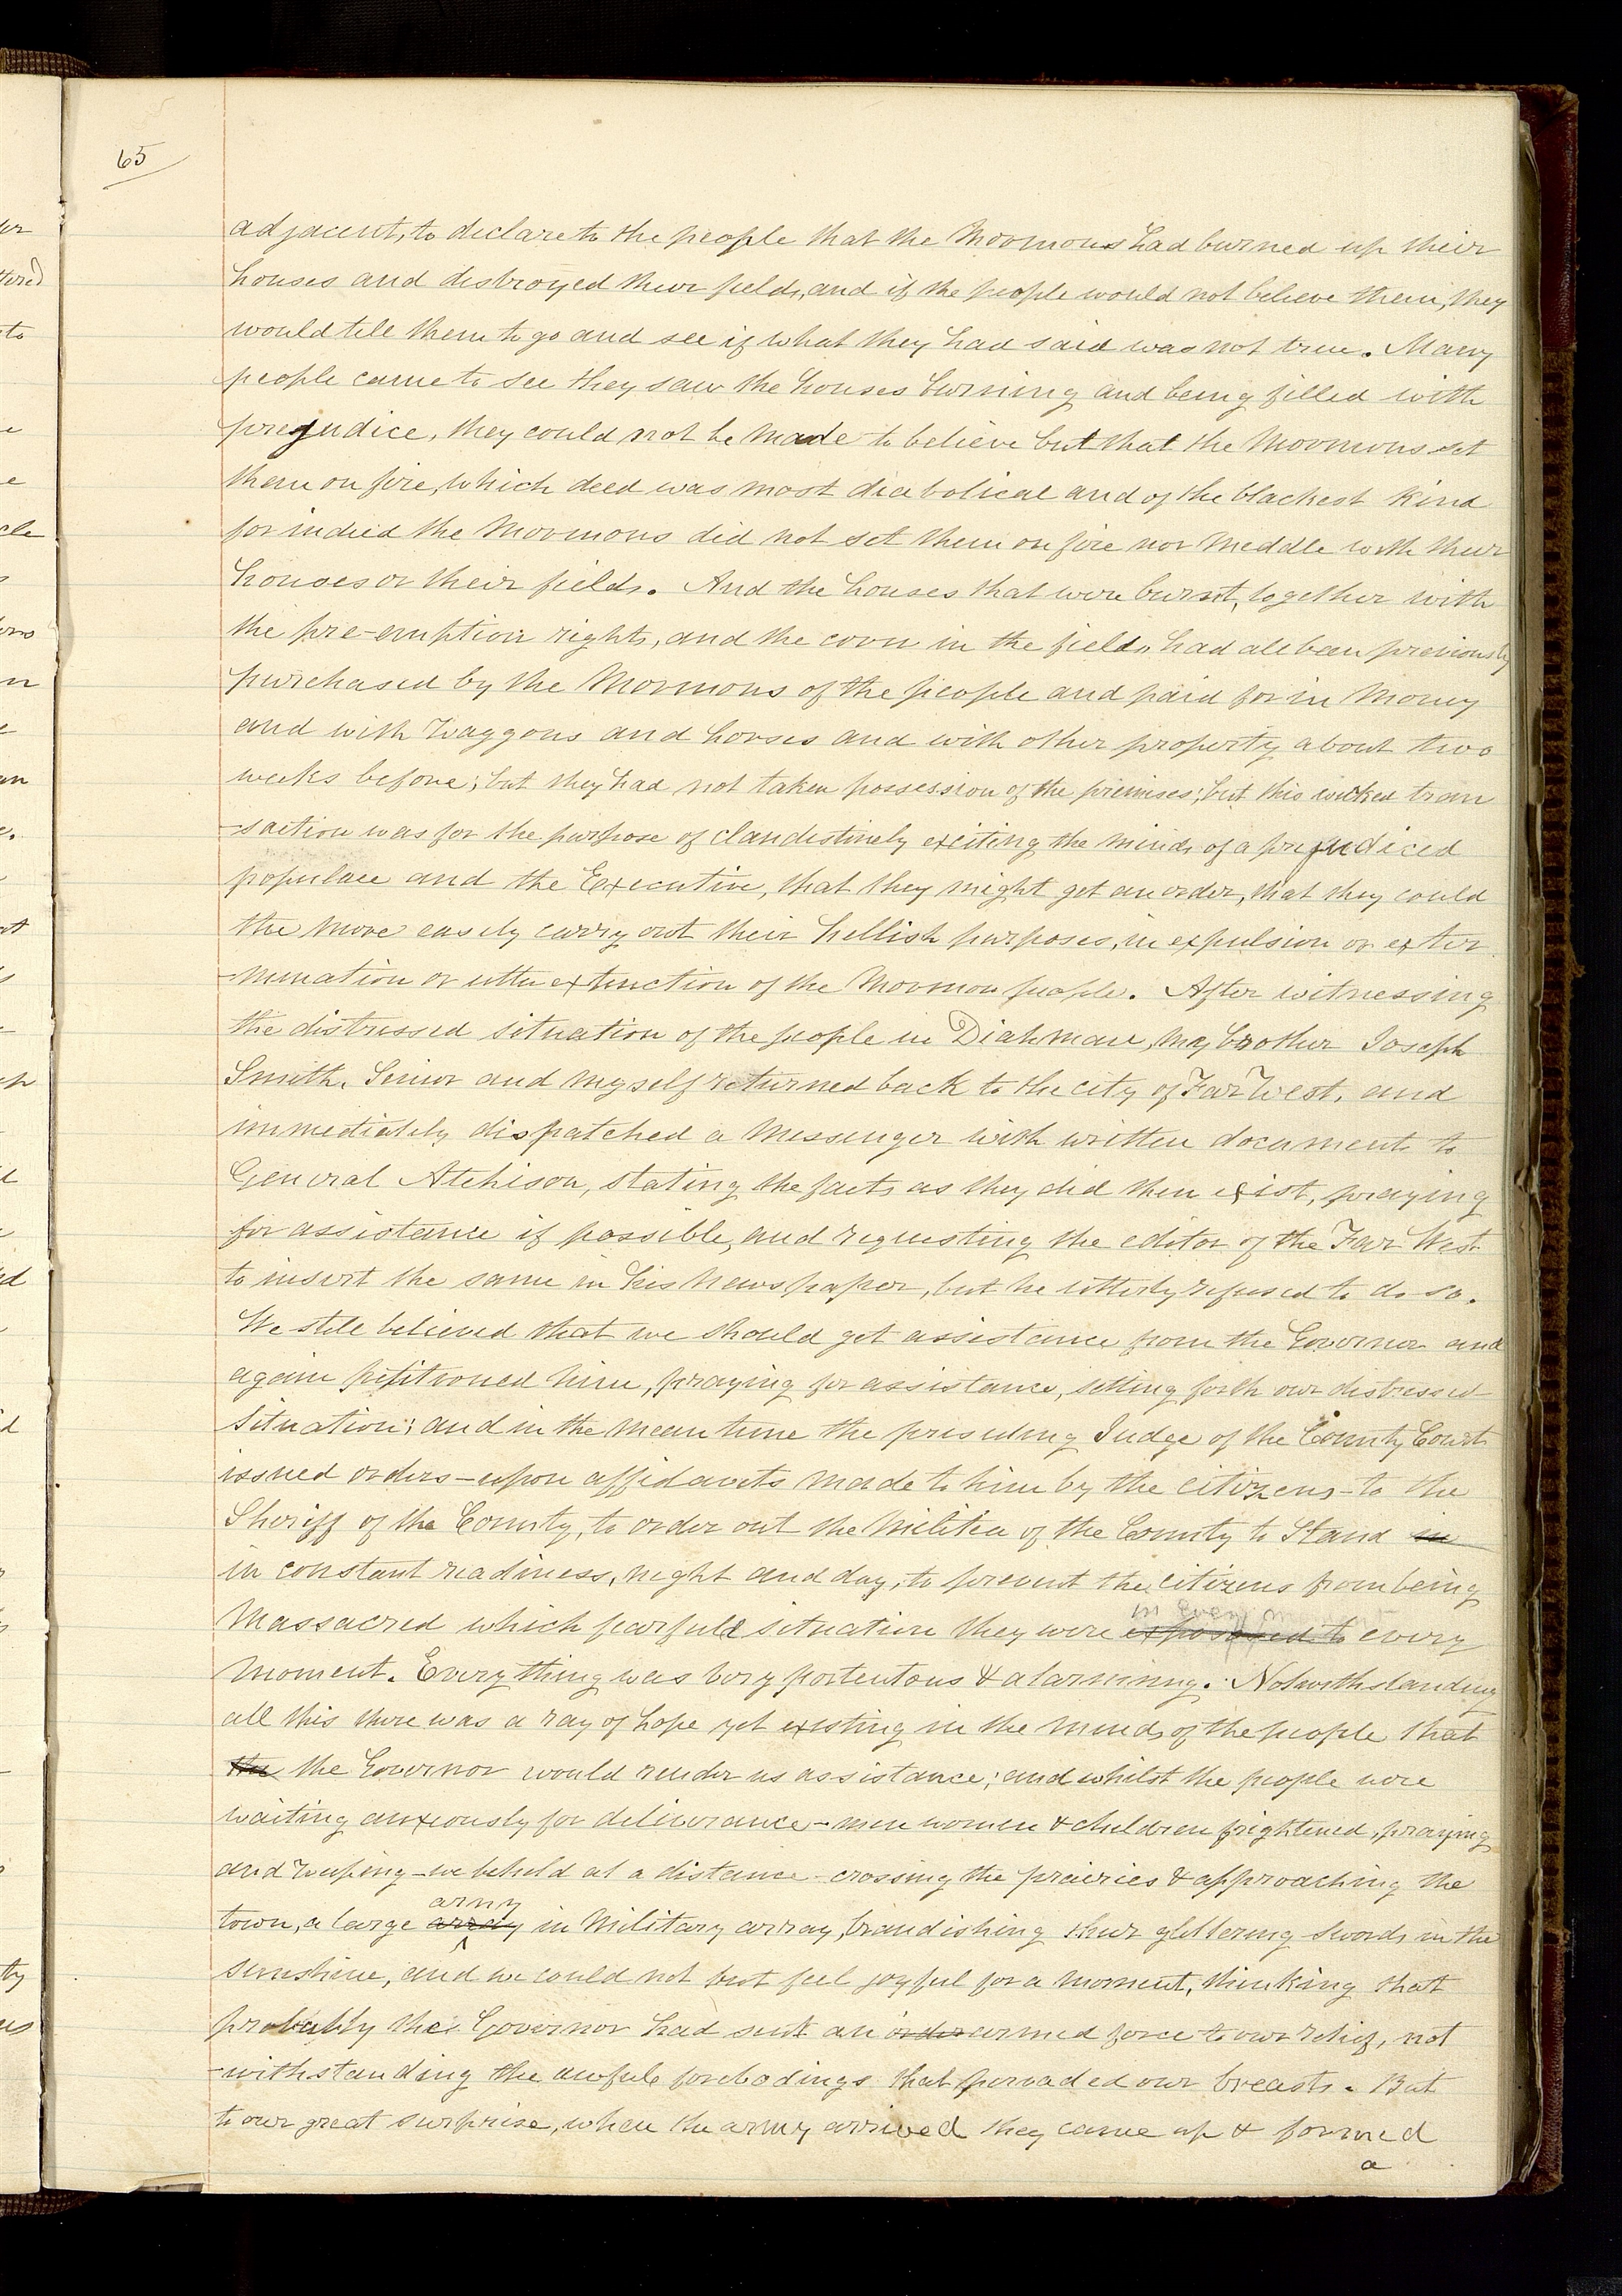 65
adjacent, to declare to the people that the Mormons had burned up their
houses and distroyed their fields, and if the people would not believe them, they
would tell them to go and see if what they had said was not true. Many
people came to see they saw the houses burning and being filled with
prejudice, they could not be made to believe but that the Mormons set
them on fire, which deed was most diabolical and of the blackest kind
for indeed the Mormons did not set them on fire nor meddle with their
houses or their fields. And the houses that were burnt, together with
the pre-emption rights, and the corn in the fields had all been previously
purchased by the Mormons of the people and paid for in money
and with waggons and horses and with other property about two
weeks before; but they had not taken possession of the premises; but this wicked tran
-saction was for the purpose of clandestinely exciting the minds of a prejudiced
populace and the Executive, that they might get an order, that they could
the more easily carry out their hellish purposes, in expulsion or exter
-mination or utter extinction of the Mormon people. After witnessing
the distressed situation of the people in Diahman, my brother Joseph
Smith, Senior and myself returned back to the city of Far West, and
immediately dispatched a messenger with written documents to
General Atchison, stating the facts as they did then exist, praying
for assistance if possible, and requesting the editor of the Far West
to insert the same in his newspaper, but he utterly refused to do so.
We still believed that we should get assistance from the Governor and
again petitioned him, praying for assistance, setting forth our distressed
situation; and in the mean time the presiding Judge of the County Court
issued orders—upon affidavits made to him by the citizens—to the
Sheriff of the County, to order out the Militia of the County to stand in
in constant readiness, night and day, to prevent the citizens from being
in every moment
Massacred which fearful situation they were exposed to every
moment. Everything was very portentous & alarming. Notwithstanding
all this there was a ray of hope yet existing in the minds of the people that
the the Governor would render us assistance; and whilst the people were
waiting anxiously for deliverance—men women & children frightened, praying
and weeping—we beheld at a distance—crossing the prairies & approaching the
army
town, a large array in military array, brandishing their glittering swords in the
sunshine, and we could not but feel joyful for a moment, thinking that
probably the Governor had sent an order armed force to our relief, not
-withstanding the awful forebodings that pervaded our breasts. But
to our great surprise, when the army arrived they came up & formed
a